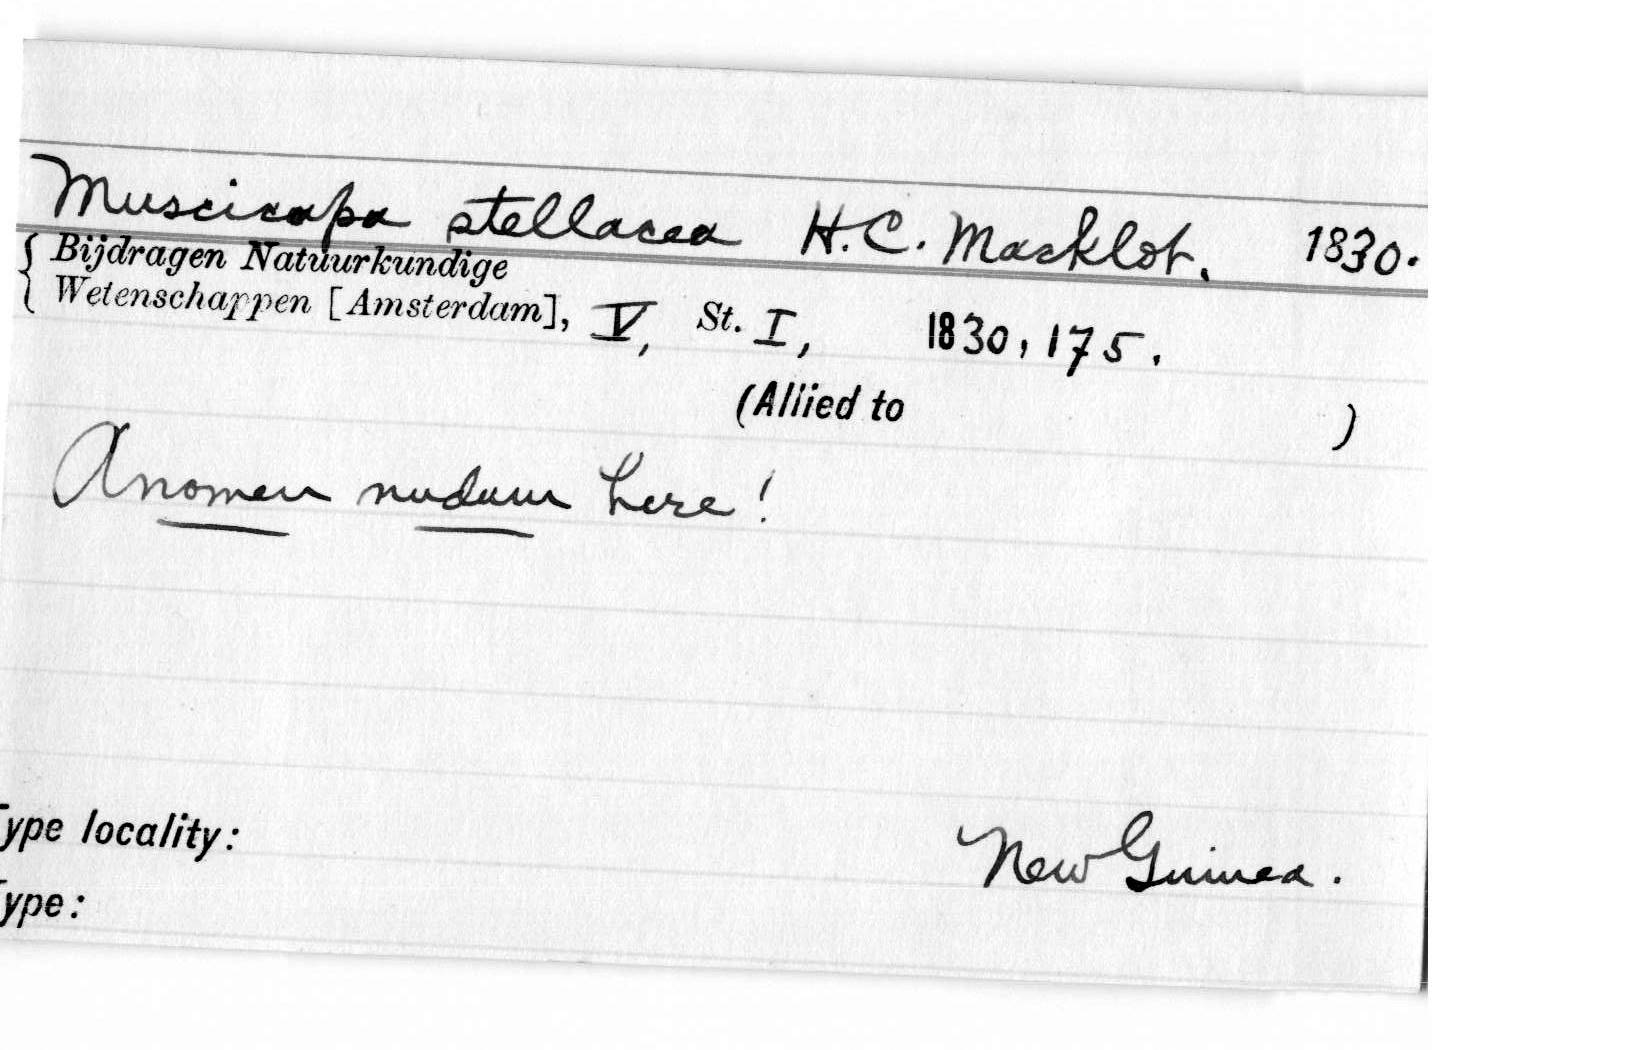 Muscicapa stellacea H.C. Macklot. 1830.
{ Bijdragen Natuurkundige
Wetenschappen [Amsterdam], V, St. I, 1830, 175.
(Allied to )
A nomen nudum here!
Type locality: New Guinea.
Type: